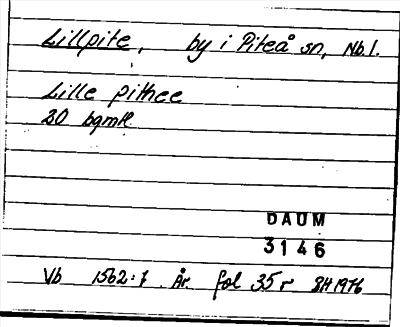 Lillpite, by i Piteå sn, Nb.l.
Lille pithee
20 bqmtl.
DAUM
3146
Vb 1562:7 År fol 35 r BH 1976